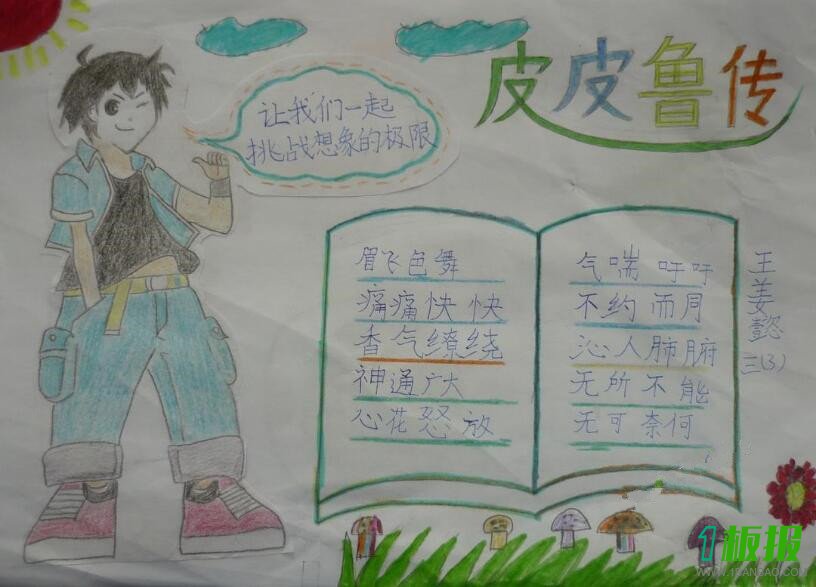 皮皮鲁传
让我们一起
挑战想象的极限
眉飞色舞
痛痛快快
香气缭绕
神通广大
心花怒放
气喘吁吁
不约而同
沁人肺腑
无所不能
无可奈何
王姜懿
三(3)
1板报
WWW.1BANBAO.COM